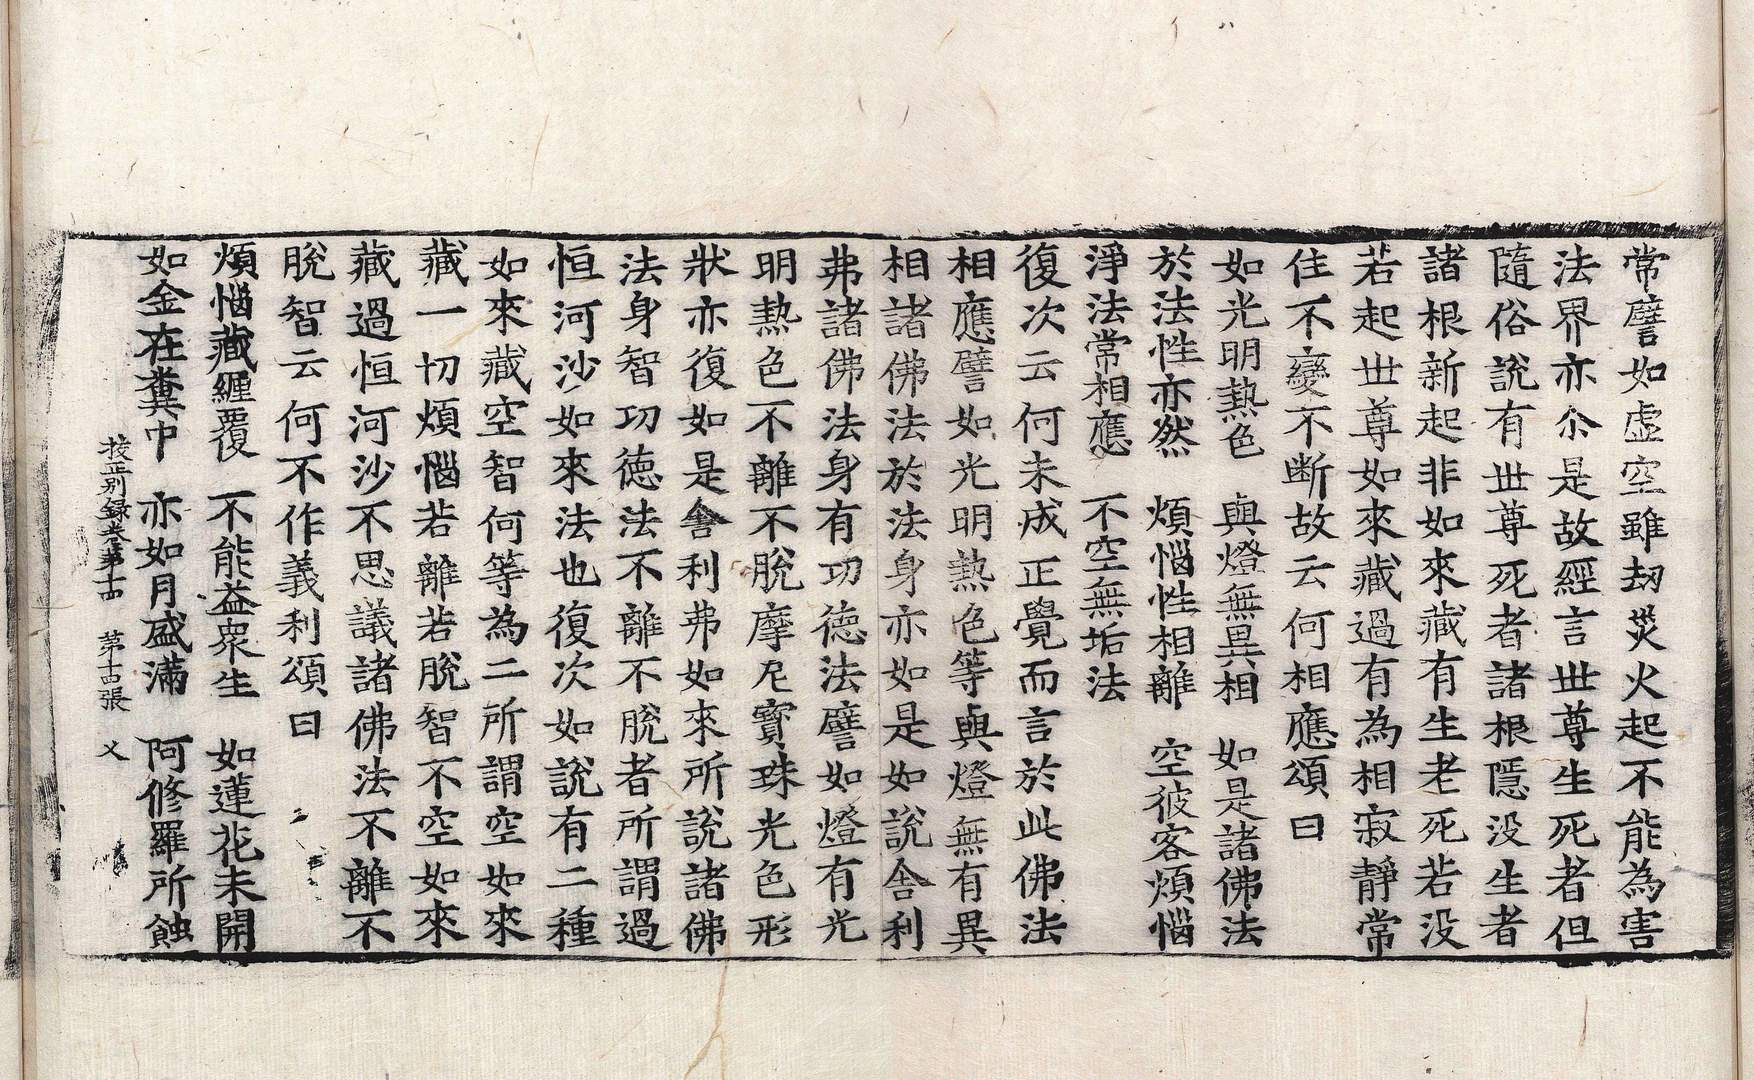 常譬如虛空雖劫災火起不能為害
法界亦尒是故經言世尊生死者但
隨俗說有世尊死者諸根隱没生者
諸根新起非如來藏有生老死若没
若起世尊如來藏過有為相寂靜常
住不變不断故云何相應頌曰
如光明熱色　與燈無異相　如是諸佛法
於法性亦然　煩惱性相離　空彼客煩惱
淨法常相應　不空無垢法
復次云何未成正覺而言於此佛法
相應譬如光明熱色等與燈無有異
相諸佛法於法身亦如是如說舎利
弗諸佛法身有功德法譬如燈有光
明熱色不離不脫摩尼寶珠光色形
狀亦復如是舎利弗如來所說諸佛
法身智功德法不離不脫者所謂過
恒河沙如來法也復次如說有二種
如來藏空智何等為二所謂空如來
藏一切煩惱若離若脫智不空如來
藏過恒河沙不思議諸佛法不離不
脫智云何不作義利頌曰
煩惱藏纏覆　不能益衆生　如蓮花未開
如金在糞中　亦如月盛滿　阿修羅所蝕
挍正別錄卷第十四　第十四張　乂